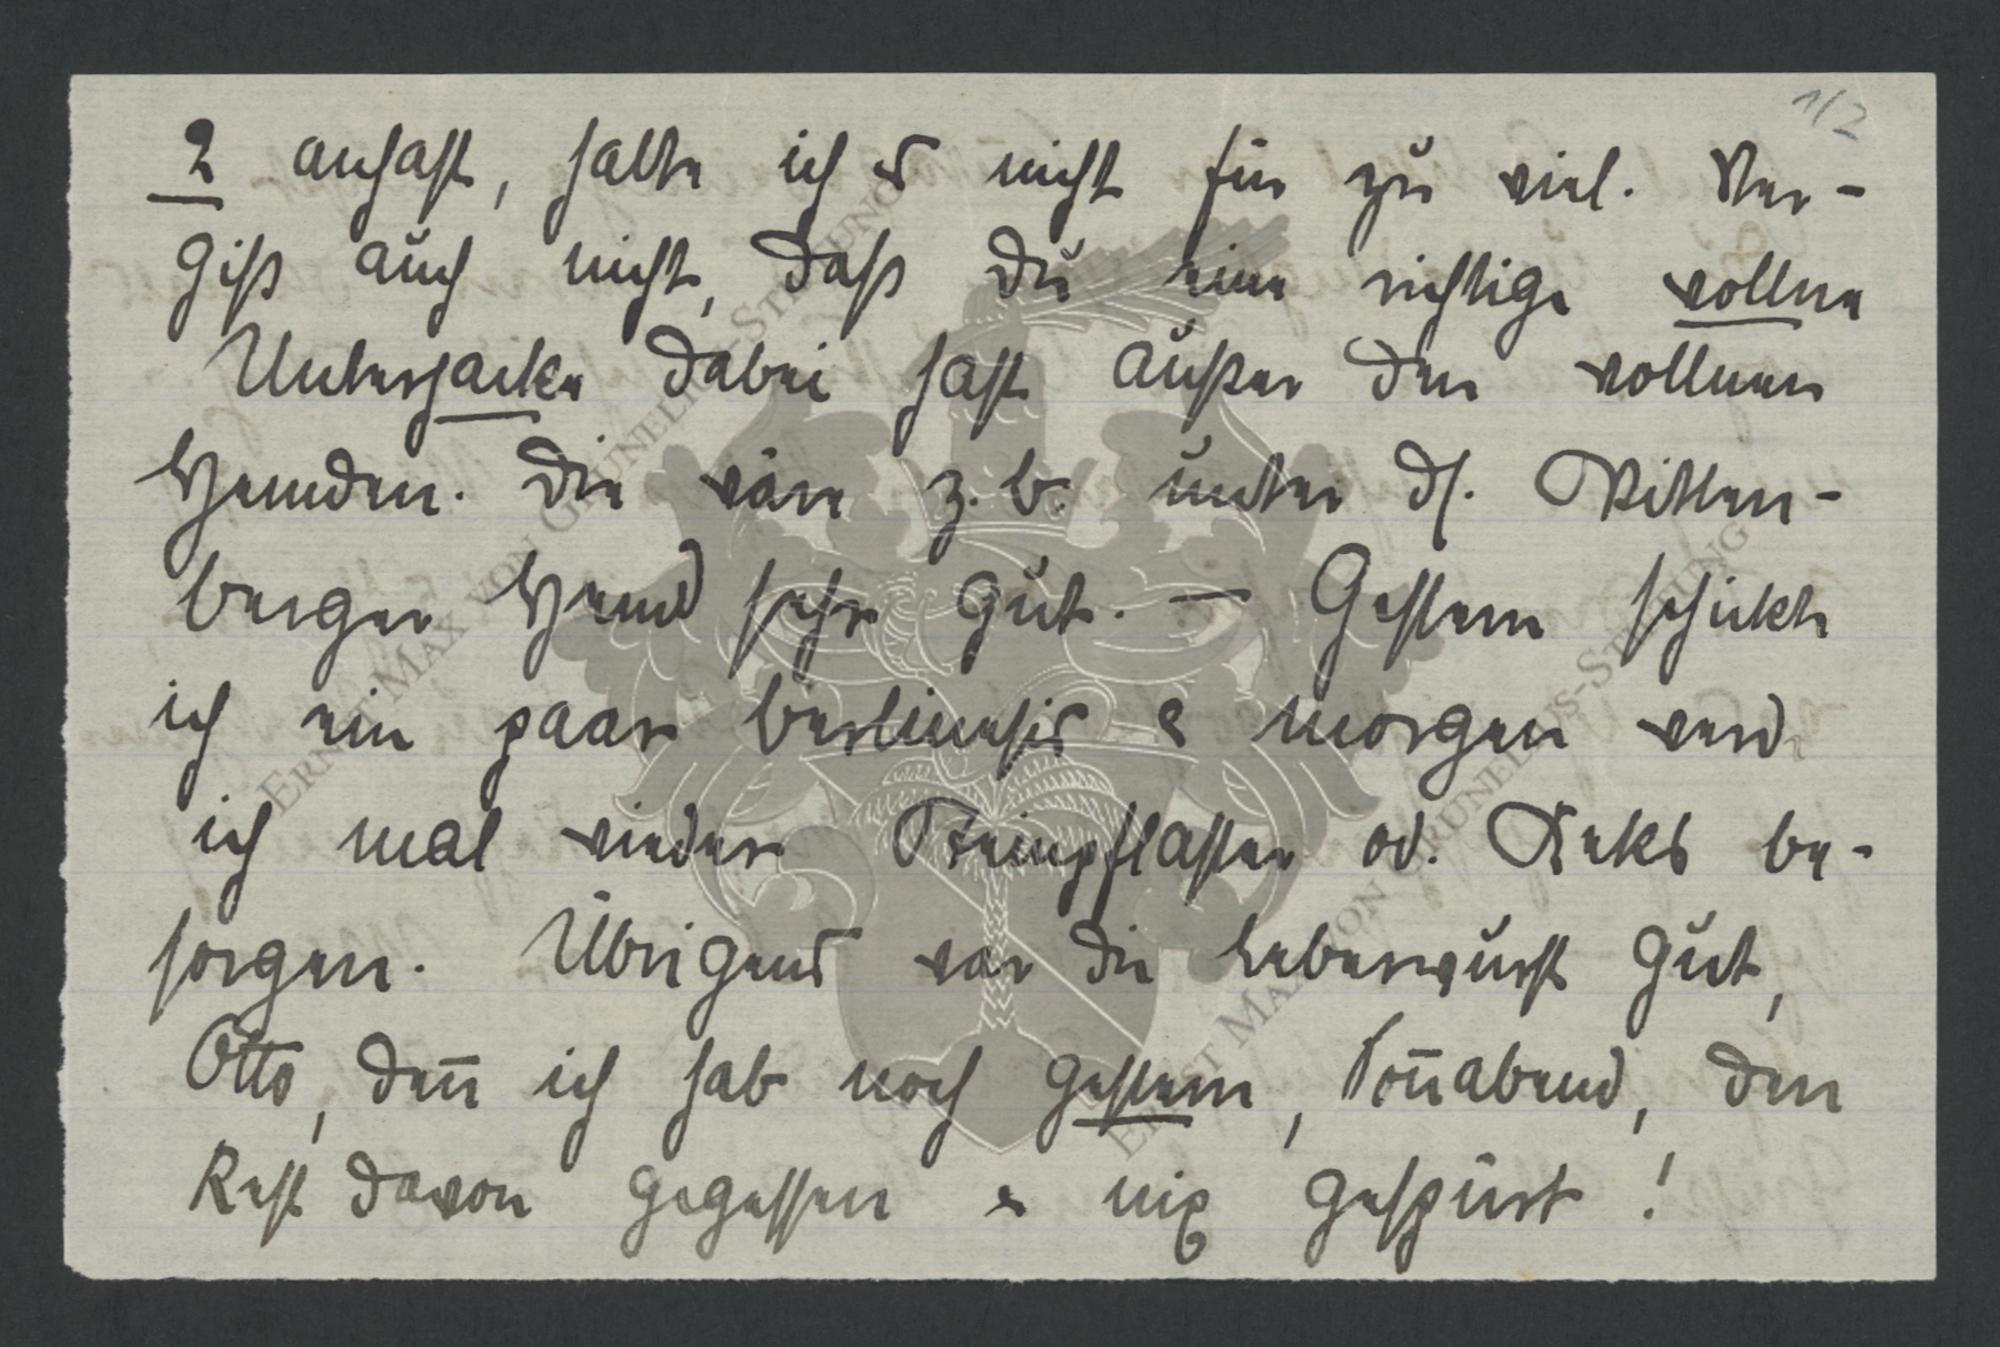 1/2
2 anhast, halte ich es nicht für zu viel. Ver-
giß auch nicht, daß Du eine richtige wollne
Unterjacke dabei hast außer den wollnen
Hemden. Die wäre z. b. unter ds. Witten-
berger Hemd sehr gut. — Gestern schickte
ich ein paar & morgen werd
ich mal wieder Steinpflaster od. Keks be-
sorgen. Übrigens war die Leberwurst gut,
Otto, den̅ ich hab noch gestern, Son̅abend, den
Rest davon gegessen & nix gespürt!
ERNST MAX VON GRUNELIUS-STIFTUNG
ERNST MAX VON GRUNELIUS-STIFTUNG